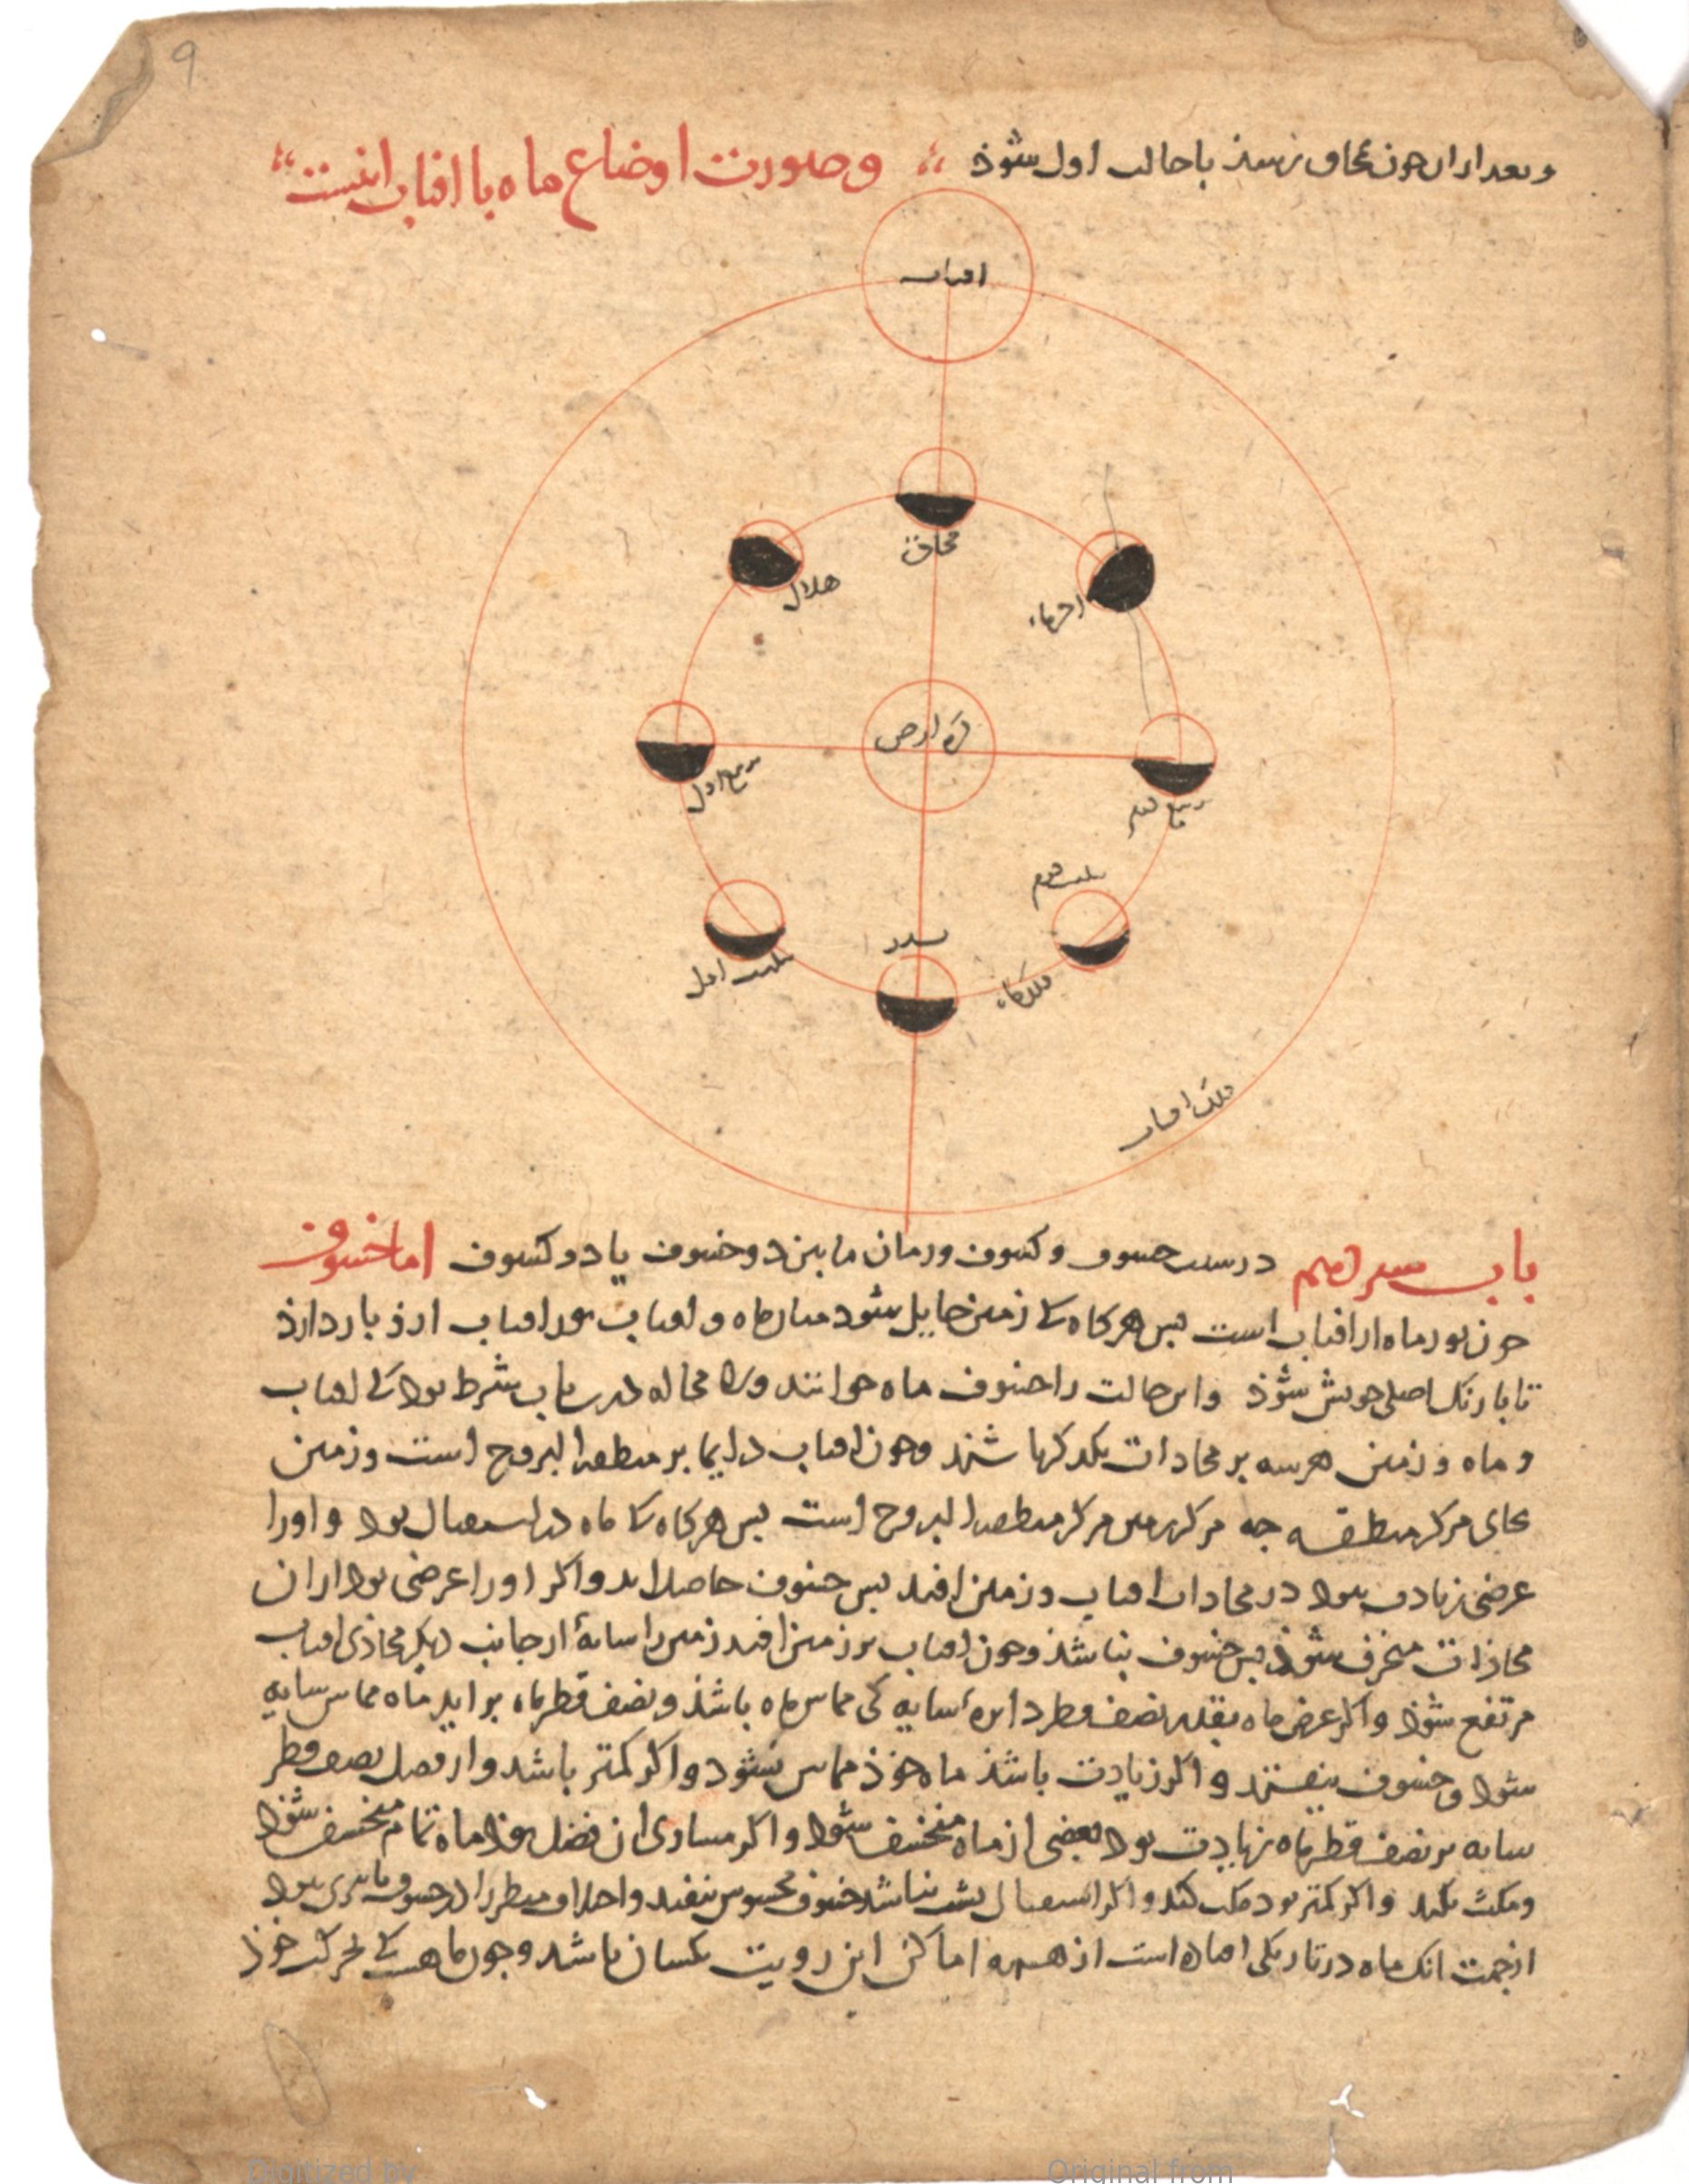 9
وبعد ازان چون بمحاق رسذ باحالت اول شوذ وصورت اوضاع ماه با افتاب اینست
افتاب
محاق
هلال
اخر ماه
کره ارض
تربیع اول
تربیع دوم
تثلیث دوم
تثلیث اول
بدر
فلک ماه
فلک افتاب
باب سیزدهم در سبب خسوف وکسوف وزمان مابین دوخسوف یا دوکسوف اما خسوف
چون نور ماه از افتاب است بس هرکاه کی زمین حایل شود میان ماه و افتاب نور افتاب ازو باز دارذ
تا با رنک اصلی خویش شوذ واین حالت را خسوف ماه خوانند ولا محاله درین باب شرط بود کی افتاب
و ماه و زمین هرسه بر محاذات یکدکر باشند وچون افتاب دایما بر منطقة البروج است وزمین
بجای مرکز منطقه چه مرکز زمین مرکز منطقة البروج است بس هرکاه کی ماه در استقبال بود و اورا
عرضی زیادت نبود در محاذات افتاب وزمین افتد بس خسوف حاصل اید واکر اورا عرضی بود از ان
محاذات منحرف شوذ بس خسوف نباشذ وچون افتاب بر زمین افتد زمین را سایهٔ از جانب دیکر محاذی افتاب
مرتفع شوذ واکر عرض ماه بقدر نصف قطر دایرهٔ سایه کی مماس ماه باشذ ونصف قطر ماه براید ماه مماس سایه
شود وخسوف نیفتد و اکر زیادت باشذ ماه خوذ مماس نشود واکر کمتر باشد واز فصل نصف قطر
سایه بر نصف قطر ماه زیادت بود بعضی از ماه منخسف شود واکر مساوی ان فضل بوذ ماه تمام منخسف شوذ
ومکث نکند واکر کمتر بود مکث کند واکر استقبال بشب نباشد خسوف محسوس نیفتد واختلاف منظر را در خسوف تاثیری نبود
ازجهت انک ماه در تاریکی افتاده است از همه اماکن این رویت یکسان باشد وچون ماه کی بحرکت خوذ
Digitized by
Original from